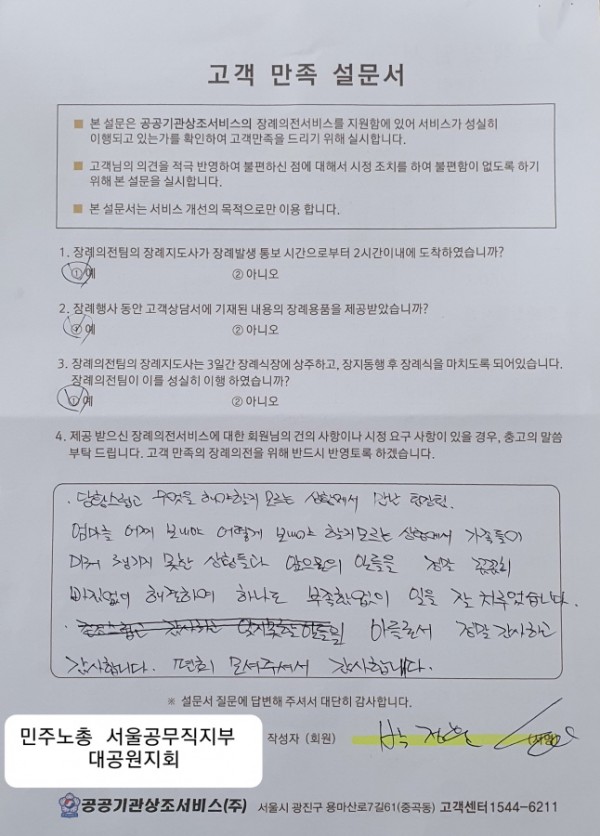 고객 만족 설문서
■ 본 설문은 공공기관상조서비스의 장례의전서비스를 지원함에 있어 서비스가 성실히
이행되고 있는가를 확인하여 고객만족을 드리기 위해 실시합니다.
■ 고객님의 의견을 적극 반영하여 불편하신 점에 대해서 시정 조치를 하여 불편함이 없도록 하기
위해 본 설문을 실시합니다.
■ 본 설문서는 서비스 개선의 목적으로만 이용 합니다.
1. 장례의전팀의 장례지도사가 장례발생 통보 시간으로부터 2시간이내에 도착하였습니까?
① 예 ② 아니오
2. 장례행사 동안 고객상담서에 기재된 내용의 장례용품을 제공받았습니까?
① 예 ② 아니오
3. 장례의전팀의 장례지도사는 3일간 장례식장에 상주하고, 장지동행 후 장례식을 마치도록 되어있습니다.
장례의전팀이 이를 성실히 이행 하였습니까?
① 예 ② 아니오
4. 제공 받으신 장례의전서비스에 대한 회원님의 건의 사항이나 시정 요구 사항이 있을 경우, 충고의 말씀
부탁 드립니다. 고객 만족의 장례의전을 위해 반드시 반영토록 하겠습니다.
. 당황스럽고 무엇을 해야할지 모르는 상황에서 만난
엄마를 어찌 보내야 어떻게 보내야 할지모르는 상황에서 가족들이
미처 챙기지 못한 상황들과 앞으로의 일들을 정말 꼼꼼히
빠짐없이 해주며 하나도 부족함없이 일을 잘 치루었습니다.
. 아들로서 정말 감사하고
감사합니다. 편히 모셔주셔서 감사합니다.
※ 설문서 질문에 답변해 주셔서 대단히 감사합니다.
작성자 (회원) 박 (서명)
민주노총 서울공무직지부
대공원지회
공공기관상조서비스(주) 서울시 광진구 용마산로7길61(중곡동) 고객센터1544-6211